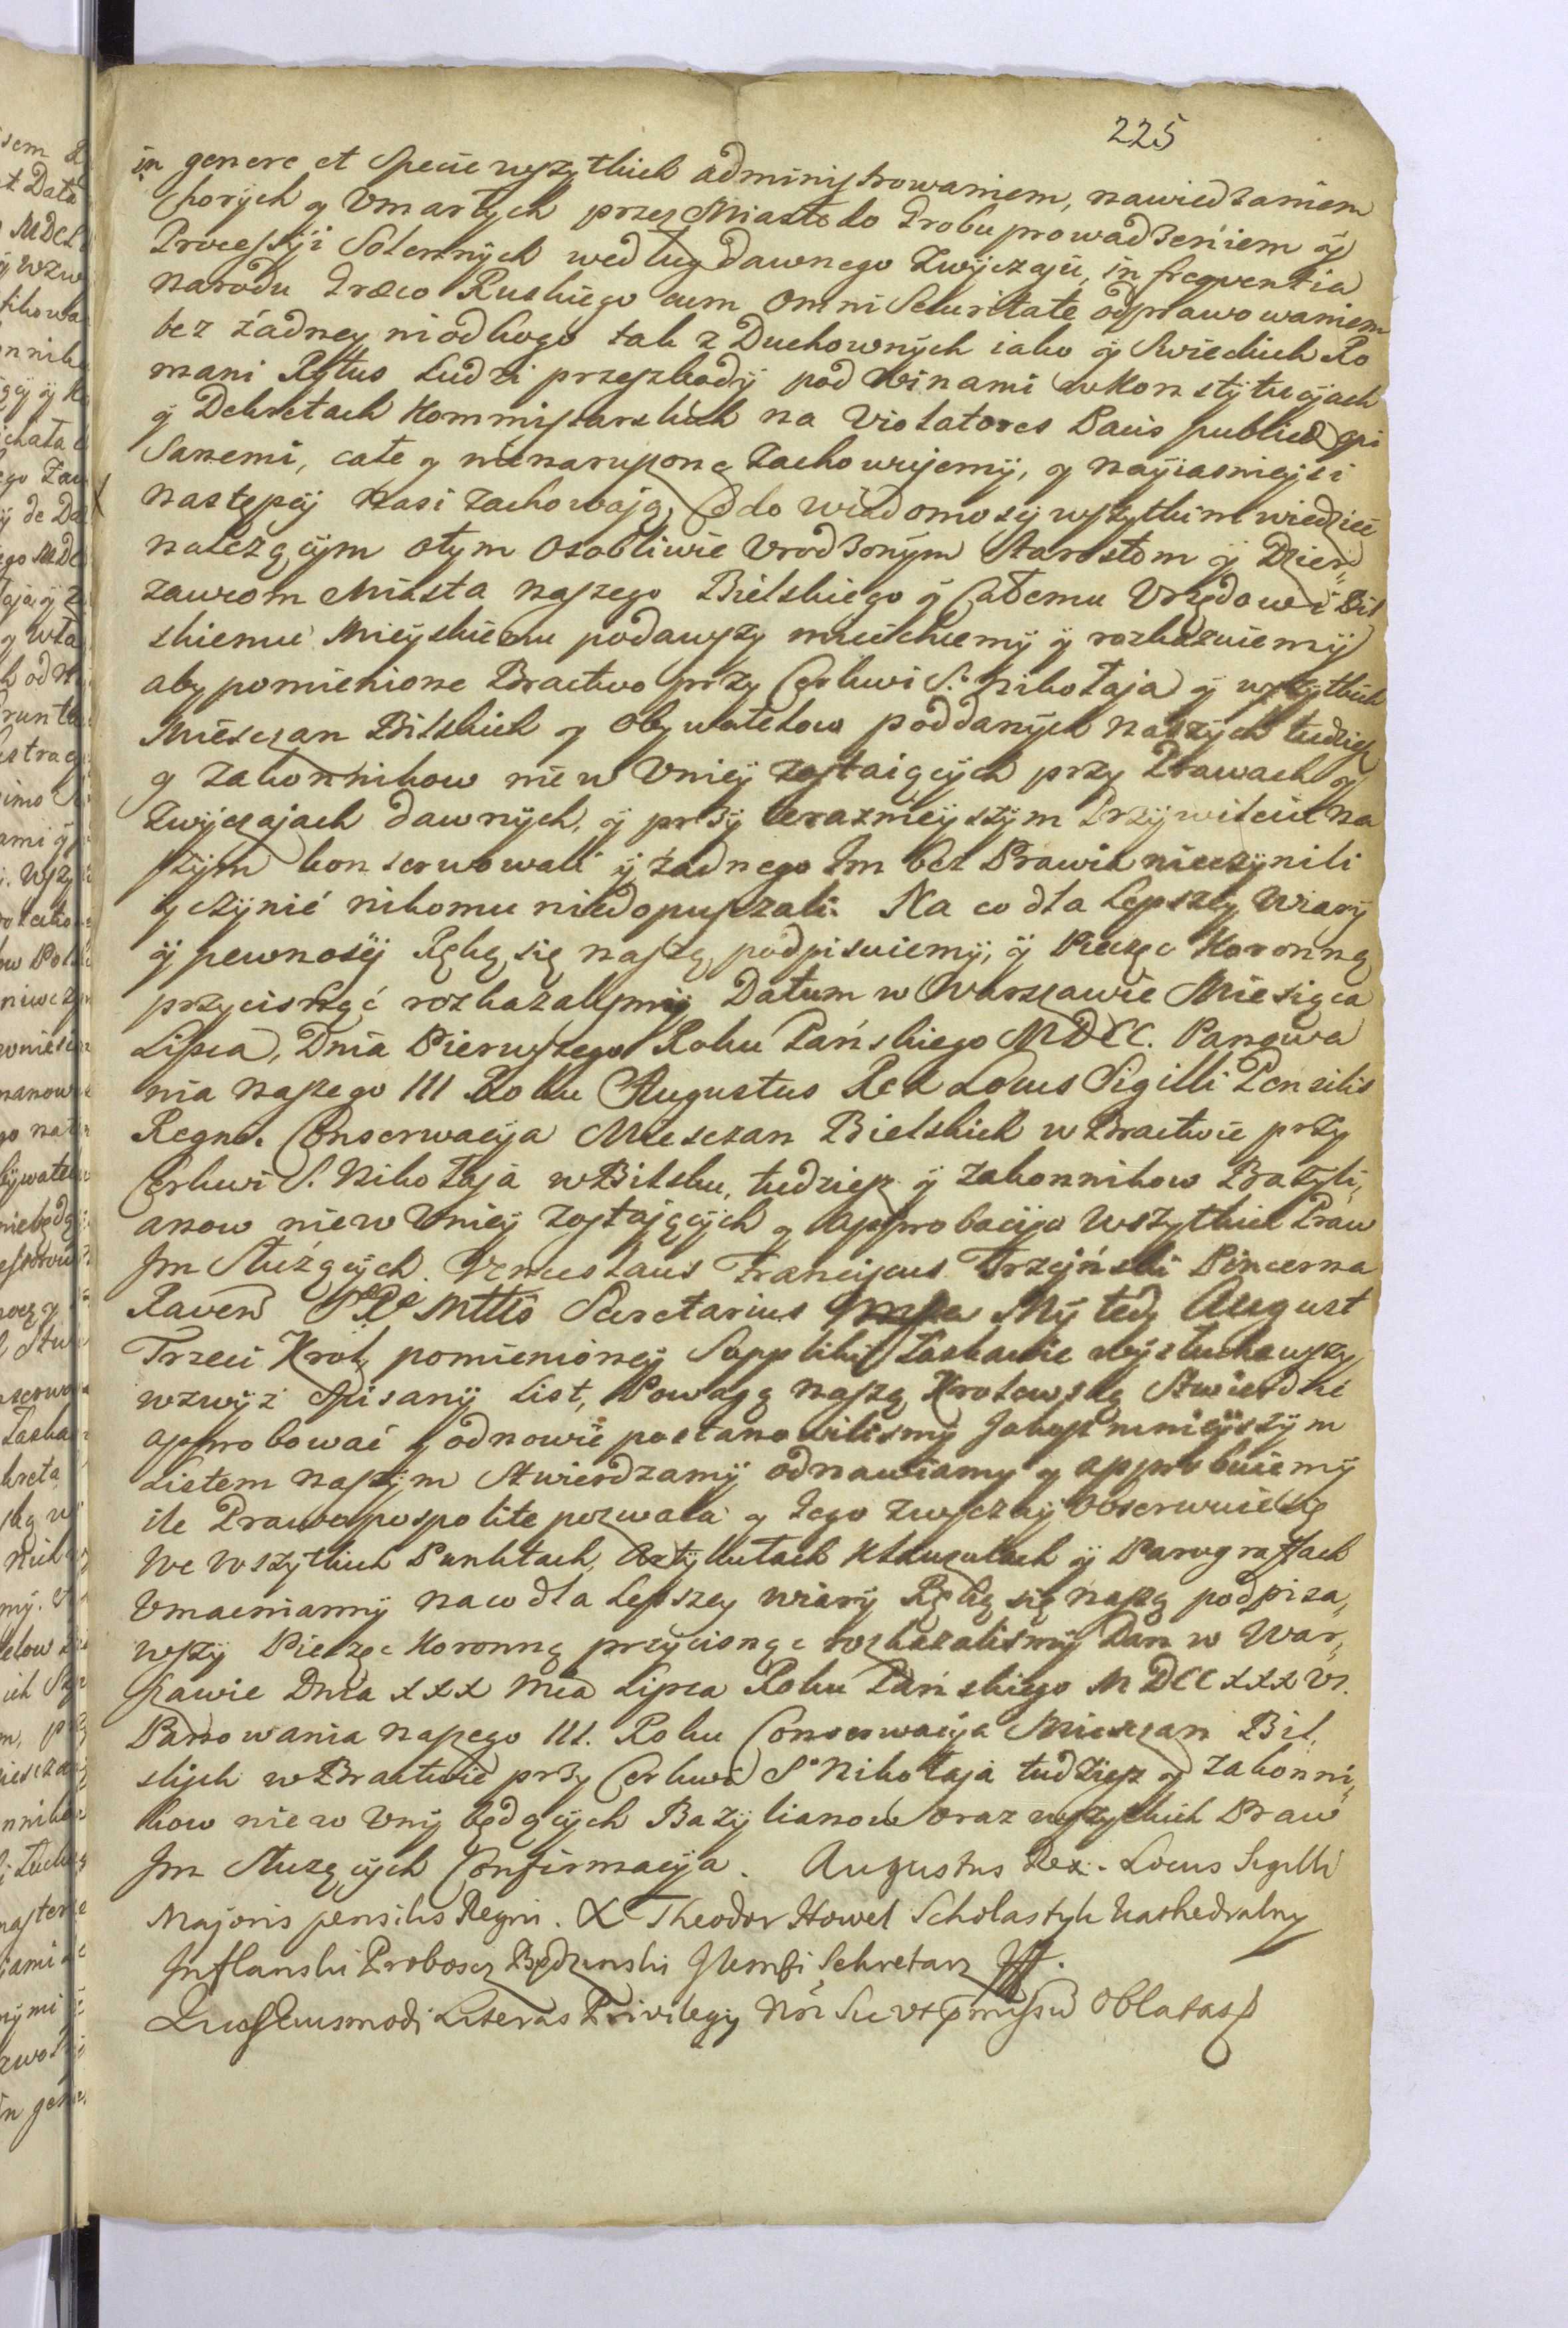 225
in genere et Specie wszytkich administrowaniem, nawiedzaniem
Chorych y Vmarłych przez Miasto do Grobu prowadzeniem ÿ
Processÿi Solennÿch według dawnego Zwÿczajú, in freqventia
narodu Græco Ruskiego cum Omni Securitate odprawowaniem
bez żadneÿ niodkogo tak z Duchownÿch iako ÿ Swieckich Ro
mani Rÿtus Ludzi przeszkodÿ pod winami w Konstÿtucÿach
ÿ Dekretach Kommissarskich na Violatores Pacis publicæ opi
sanemi, całe y nienaruszone Zachowujemÿ, y naÿiasnieÿsi
następcÿ nasi zachowają, Co do wiadomoscÿ wszytkim wiedzieć
należącÿm otÿm Osobliwie Vrodzonÿm Starostom ÿ Dzier„
zawcom Miasta naszego Bielskiego ÿ Całemu Vrzędowi Bil
skiemu Mieÿskiemu podawszy mieć chcemÿ ÿ rozkazuiemÿ
aby pomienione Bractwo przy Cerkwi S. Nikołaja ÿ wszytkich
Miesczan Bilskich y Obywatelow poddanÿch naszÿch tudziesz
y Zakonnikow nie w Vnieÿ zostaiącÿch przy Prawach y
Zwÿczajach dawnÿch, ÿ przÿ terazmieÿszÿm Przÿwileiu na
szÿm konserwowali ÿ żadnego Im bez Prawia nieczÿnili
y czÿnić nikomu niedopuszzali. Na co dla Lepszeÿ Wiarÿ
ÿ pewnoscÿ Ręką się naszą podpisuiemÿ, ÿ Pieczęc Koronną
przycisnąć rozkazalismÿ Datum w Warszawie Miesiąca
Lipca, Dnia Pierwszego Roku Pańskiego MDCC. Panowa
nia naszego III Roku Augustus Rex Locus Sigilli Pensilis
Regni. Conserwacÿa Miesczan Bielskich w Bractwie przy
Cerkwi S. Nikołaja w Bilsku, tudziesz ÿ Zakonnikow Bazÿli„
anow niew Vnieÿ zostającÿch y Approbacÿa Wszytkich Praw
Im Służącÿch. Venceslaus Franciscus Trzcÿński Pincerna
Raven S R Mttis Secretarius mpa Mÿ tedy August
Trzeci Krol pomienioneÿ Supplikÿ Łaskawie wÿsłuchawszy
wzwÿż Opisanÿ List, Powagą naszą Krolewską Stwierdzić
approbować y odnowić postanowilismÿ Jakosz ninieÿszÿm
Listem naszÿm Stwierdzamÿ odnawiamy y approbuiemÿ
ile Prawo pospolite pozwala y Jego zwyczaÿ Obserwuie się
We wszytkich Punktach, Artÿkułach Klauzulach ÿ Paragraffach
Vmacniamÿ na co dla Lepszey wiarÿ Ręką się naszą podpisa„
wszÿ Pieczęc Koronną przÿcisnąc rozkazalismÿ Dan w War„
szawie Dnia XXX Mca Lipca Roku Pańskiego MDCCXXXVI.
Panowania naszego III. Roku Conserwacÿa Miesczan Bil„
skijch w Bractwie przÿ Cerkwi S. Nikołaja tudziesz y Zakonni„
kow nie w Vnÿ będącÿch Bazÿlianow oraz wszytkich Praw
Im Służącÿch Confirmacÿa. Augustus Rex. Locus Sigilli
Majoris pensilis Regni. X Theodor Howel Scholastyk Kathedralny
Inflanski Proboscz Będzinski JKMsci Sekretarz
Literas Privilegÿ Oblatas